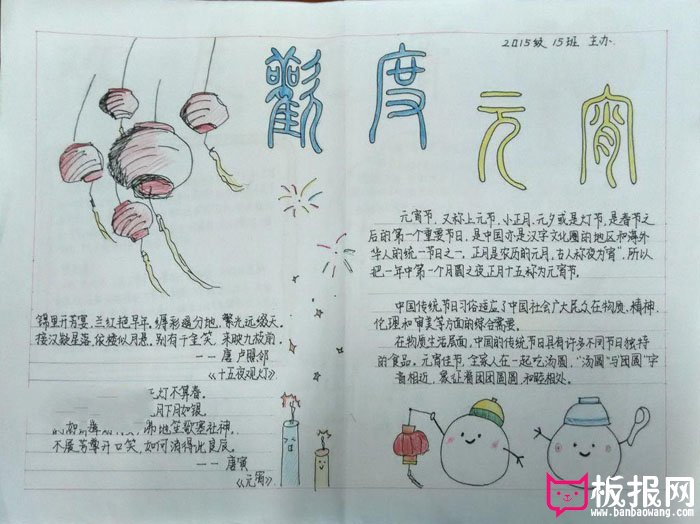 2015级 15班 主办
歡度元宵
元宵节，又称上元节，小正月、元夕或是灯节，是春节之
后的第一个重要节日，是中国亦是汉字文化圈的地区和海外
华人的统一节日之一。正月是农历的元月，古人称夜为"宵"，所以
把一年中第一个月圆之夜正月十五称为元宵节。
中国传统节日习俗适应了中国社会广大民众在物质、精神、
伦理和审美等方面的综合需要。
在物质生活层面，中国的传统节日具有许多不同节日独特
的食品。元宵佳节，全家人在一起吃汤圆，"汤圆"与"团圆"字
音相近，象征着团团圆圆，和睦相处。
锦里开芳宴，兰红艳早年。缛彩遥分地，繁光远缀天。
接汉疑星落，依楼似月悬。别有千金笑，来映九枝前。
—— 唐 卢照邻
《十五夜观灯》
灯不算春。
月下月如银。
满地笙歌赛社神。
不展芳尊开口笑，如何消得此良辰。
—— 唐寅
《元宵》
板报网
www.banbaowang.com